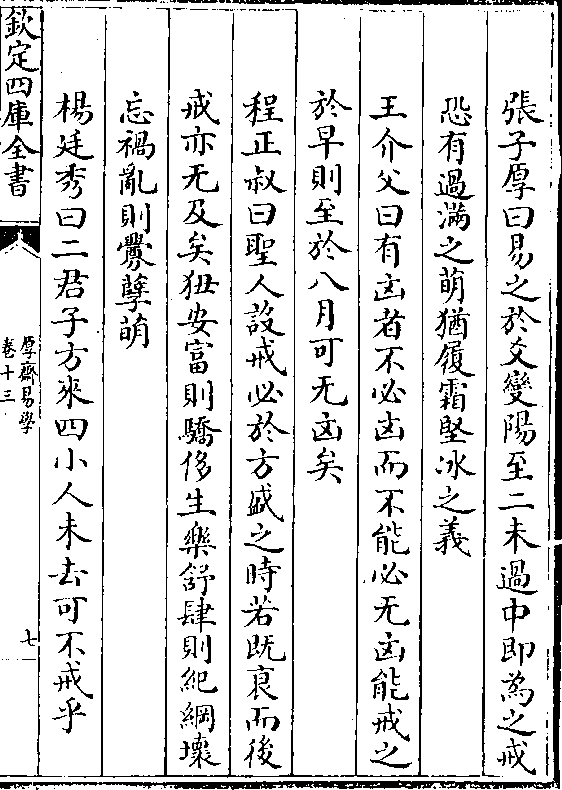 張子厚曰易之於爻變陽至二未過中即為之戒
恐有過滿之萌猶履霜堅冰之義
王介父曰有凶者不必凶而不能必无凶能戒之
於早則至於八月可无凶矣
程正叔曰聖人設戒必於方盛之時若既衰而後
戒亦无及矣狃安富則驕侈生樂舒肆則紀綱壞
忘禍亂則釁孽萌
楊廷秀曰二君子方來四小人未去可不戒乎
欽定四庫全書
厚齋易學
卷十三
七